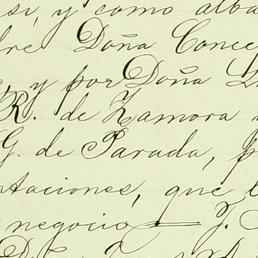 si, y como alba
dre Doña Conce
y por Doña
R. de Zamora
G. de Parada, p
ntaciones, que l
negocio — J.